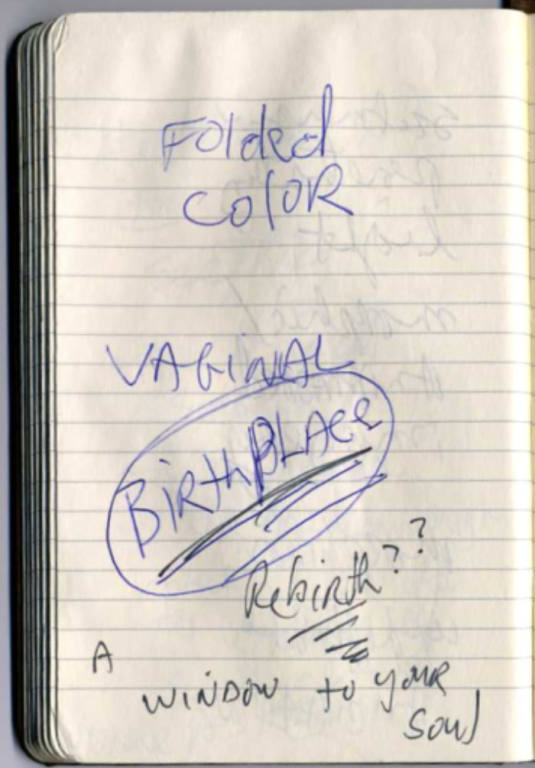 Folded
COLOR
VAGINAL
BirthPLACe
Rebirth??
A
WINDOW to your
Soul